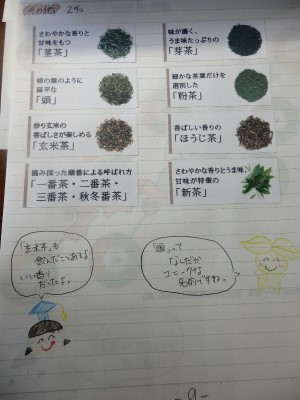 その他
さわやかな香りと
甘味をもつ
「茎茶」
味が濃く、
うま味たっぷりの
「芽茶」
柳の葉のように
扁平な
「頭」
細かな茶葉だけを
選別した
「粉茶」
炒り玄米の
香ばしさが楽しめる
「玄米茶」
香ばしい香りの
「ほうじ茶」
摘み採った順番による呼ばれ方
「一番茶・二番茶・
三番茶・秋冬番茶」
さわやかな香りとうま味、
甘味が特徴の
「新茶」
「玄米茶」も
飲んだことあるよ
いい香り
だったよ。
「頭」って
なんだか
ユニークな
名前ですね。
-9-